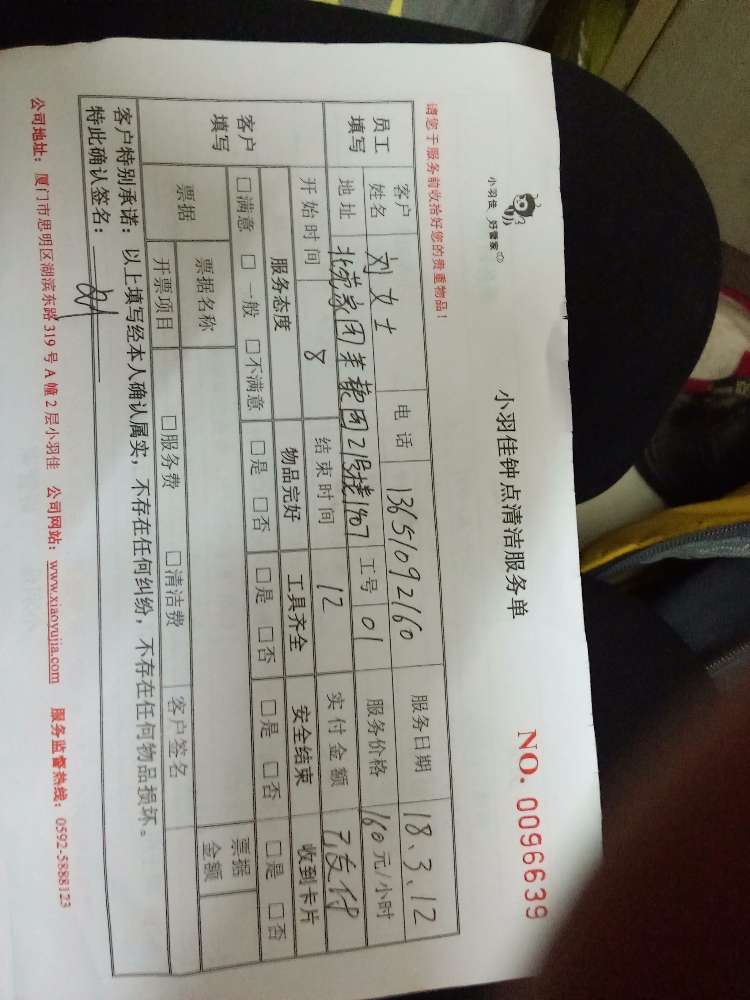 小羽佳 好管家
小羽佳钟点清洁服务单
NO. 0096639
请您于服务前收拾好您的贵重物品！
员工填写 客户姓名 刘女士 电话 13651092160 服务日期 18.3.12
地址 北苑家园 21号楼1907 工号 01 服务价格 160元/小时
开始时间 8 结束时间 12 实付金额 已支付
客户填写 服务态度 物品完好 工具齐全 安全结束 收到卡片
□满意 □一般 □不满意 □是 □否 □是 □否 □是 □否 □是 □否
票据 票据名称 票据金额
开票项目 □服务费 □清洁费 客户签名
客户特别承诺：以上填写经本人确认属实，不存在任何纠纷，不存在任何物品损坏。
特此确认签名：
公司地址：厦门市思明区湖滨东路 319 号 A 幢 2 层小羽佳 公司网站：www.xiaoyujia.com 服务监督热线：0592-5888123